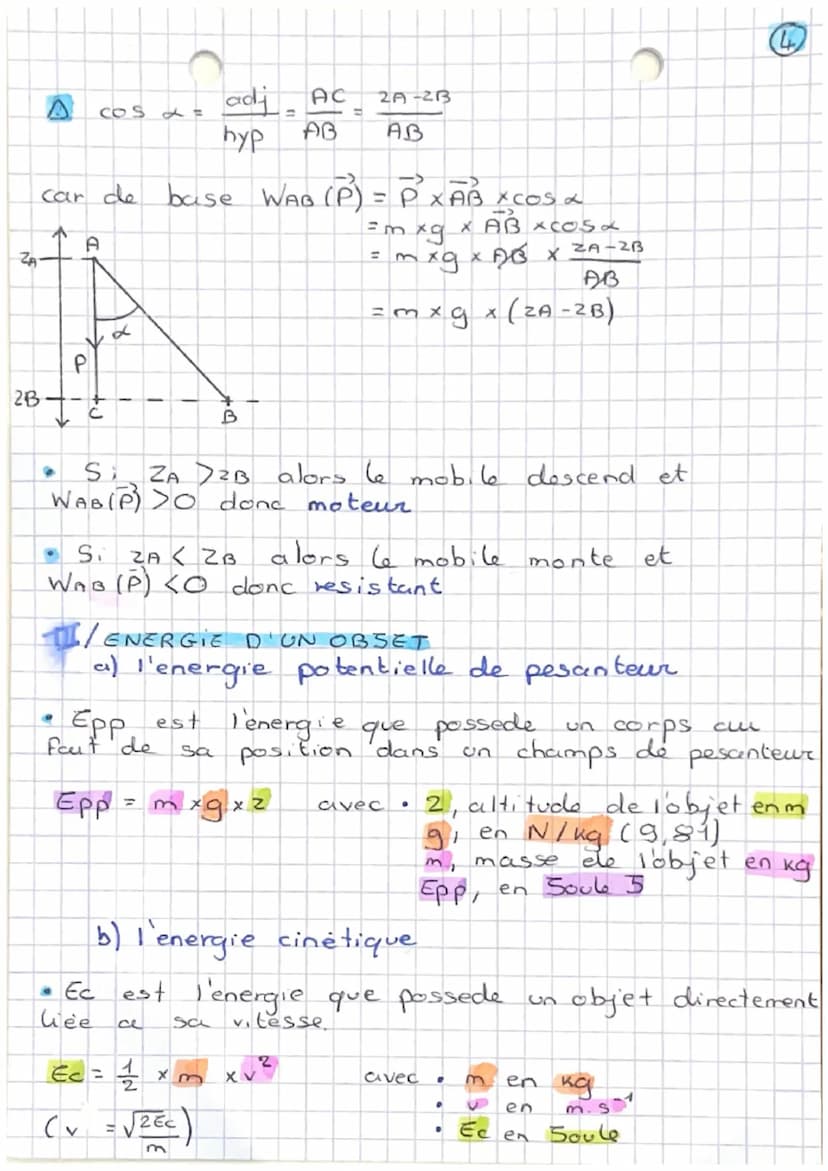 4
⚠ cos α = adj/hyp = AC/AB = ZA-ZB/AB
car de base WAB (P⃗) = P⃗ x AB⃗ x cos α
= m x g x AB⃗ x cos α
= m x g x AB x ZA-ZB/AB
= m x g x (ZA-ZB)
ZA
A
α
P
ZB
C
B
• Si ZA > ZB alors le mobile descend et
WAB(P⃗) > 0 donc moteur
• Si ZA < ZB alors le mobile monte et
WAB (P⃗) < 0 donc resistant
III/ ENERGIE D'UN OBJET
a) l'energie potentielle de pesanteur
• Epp est l'énergie que possede un corps au
fait de sa position dans un champs de pesanteur
Epp = m x g x z avec • z, altitude de l'objet en m
g, en N/kg (9,81)
m, masse de l'objet en kg
Epp, en Joule J
b) l'energie cinétique
• Ec est l'énergie que possede un objet directement
liée a sa vitesse.
Ec = 1/2 x m x v² avec • m en kg
• v en m.s⁻¹
(v = √2Ec/m) • Ec en Joule